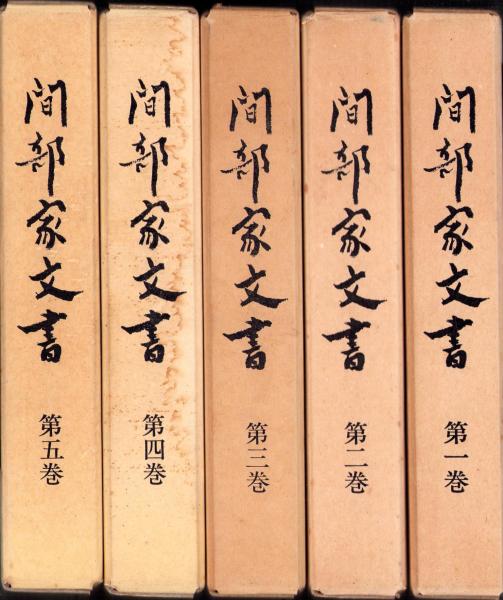 間部家文書
第一巻
間部家文書
第二巻
間部家文書
第三巻
間部家文書
第四巻
間部家文書
第五巻